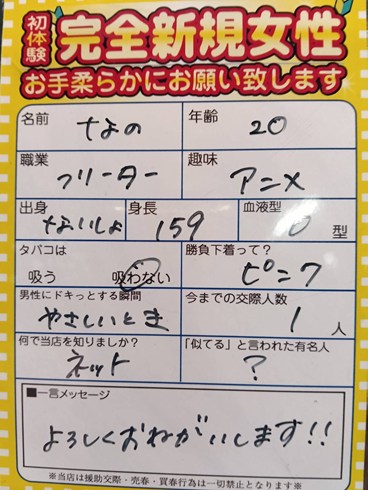 初体験 完全新規女性
お手柔らかにお願い致します
名前 なの 年齢 20
職業 フリーター 趣味 アニメ
出身 ないしょ 身長 159 血液型 O 型
タバコは 勝負下着って?
吸う 吸わない ピンク
男性にドキっとする瞬間 今までの交際人数
やさしいとき 1 人
何で当店を知りましたか? 「似てる」と言われた有名人
ネット ?
■一言メッセージ
よろしくおねがいします!!
※当店は援助交際・売春・買春行為は一切禁止となります※